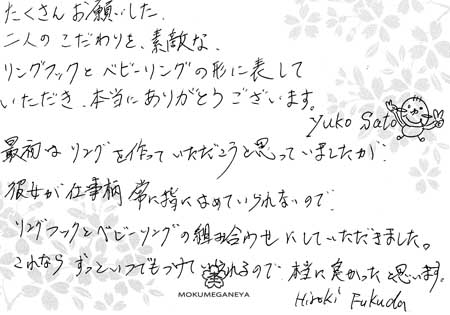 たくさんお願いした
二人のこだわりを、素敵な
リングフックとベビーリングの形に表して
いただき、本当にありがとうございます。
Yuko Sato
最初はリングを作っていただこうと思っていましたが
彼女が仕事柄常に指にはめていられないので
リングフックとベビーリングの組み合わせにしていただきました。
これならずっといつでもつけていられるので本当に良かったと思います。
MOKUMEGANEYA
Hiroki Fukuda